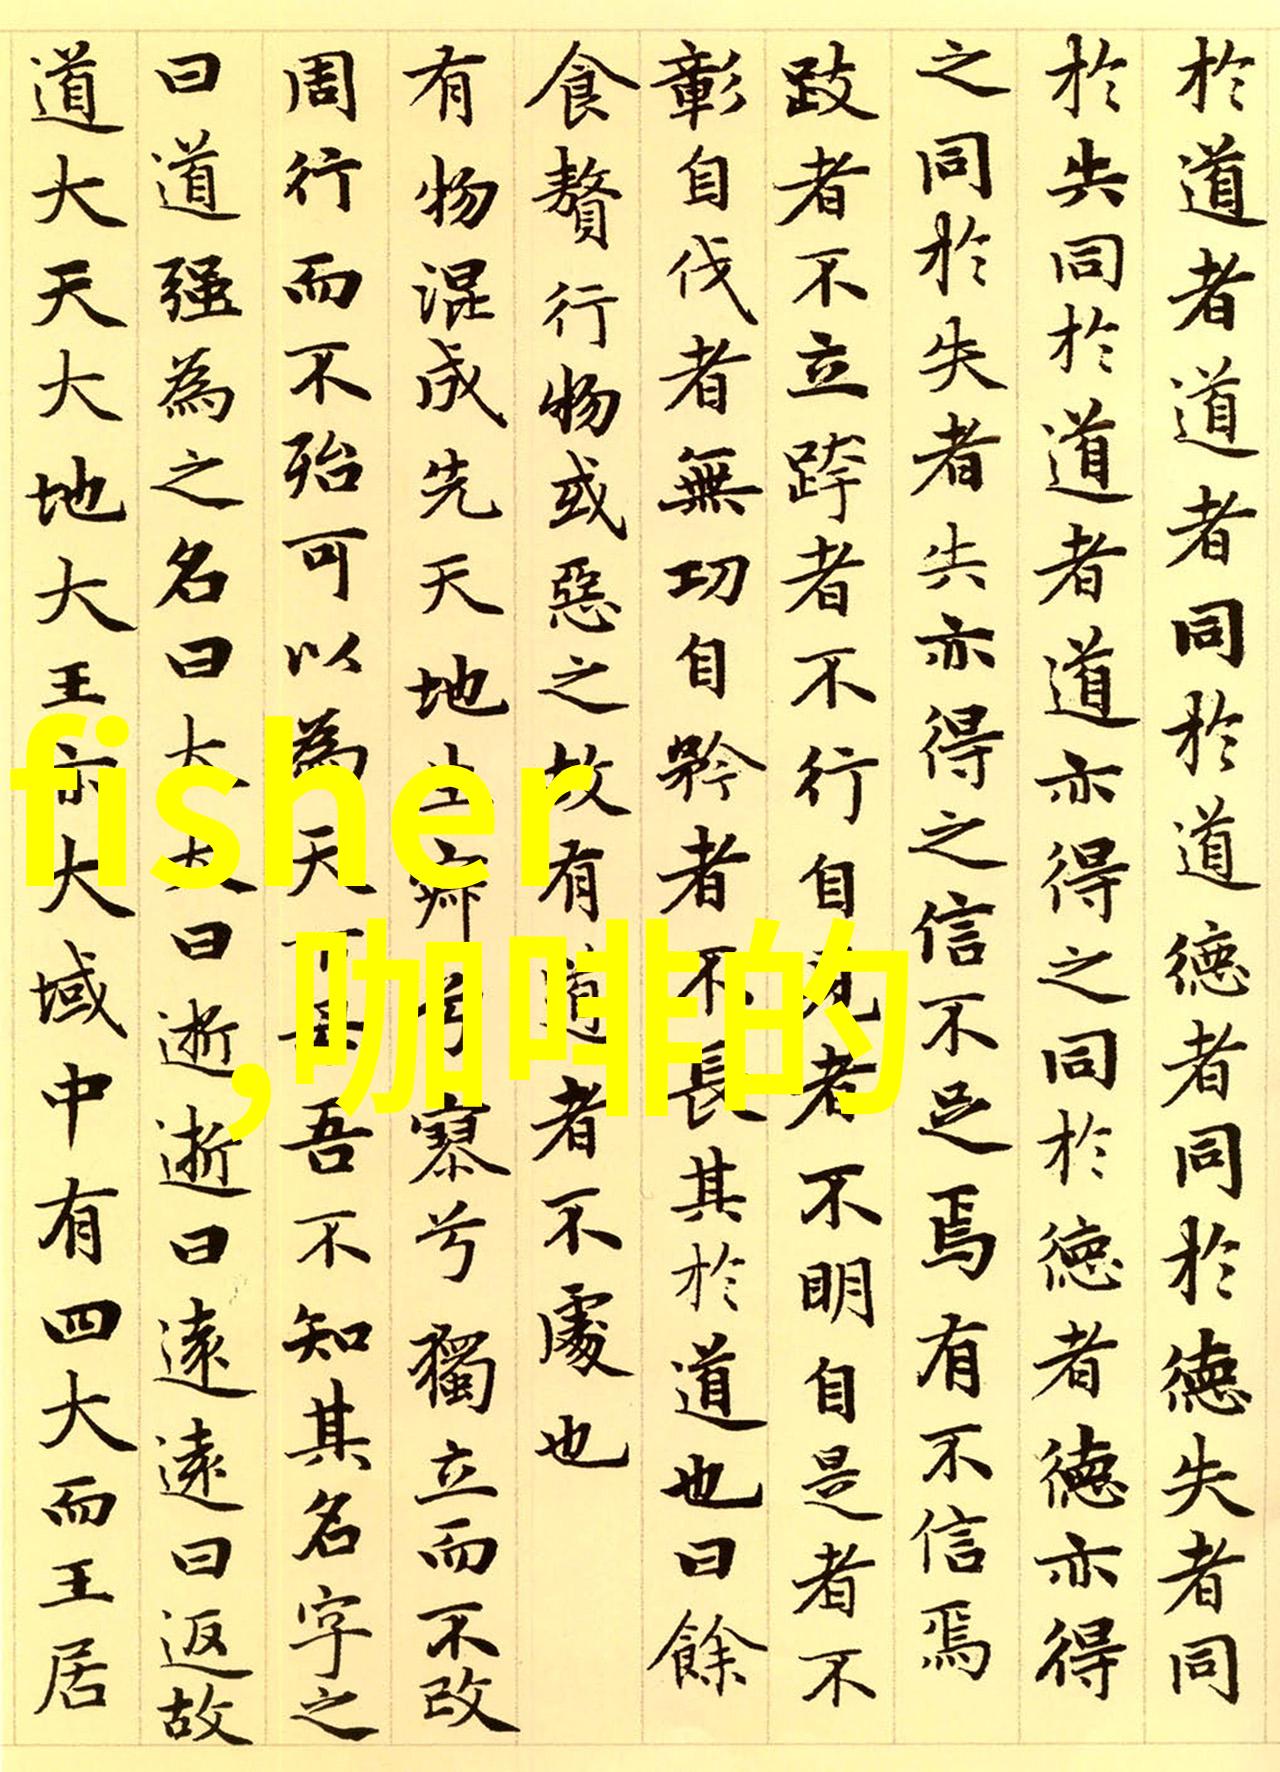 於道者道者同於道德者同於德失者同
於失同於道者道亦得之同於德者德亦得
之同於失者失亦得之信不足焉有不信焉
跂者不立跨者不行自見者不明自是者不
彰自伐者無功自矜者不長其於道也曰餘
食贅行物或惡之故有道者不處也
有物混成先天地生寂兮寥兮獨立而不改
周行而不殆可以為天下母吾不知其名字之
曰道强為之名曰大大曰逝逝曰遠遠曰返故
道大天大地大王亦大域中有四大而王居
fisher
,咖啡的